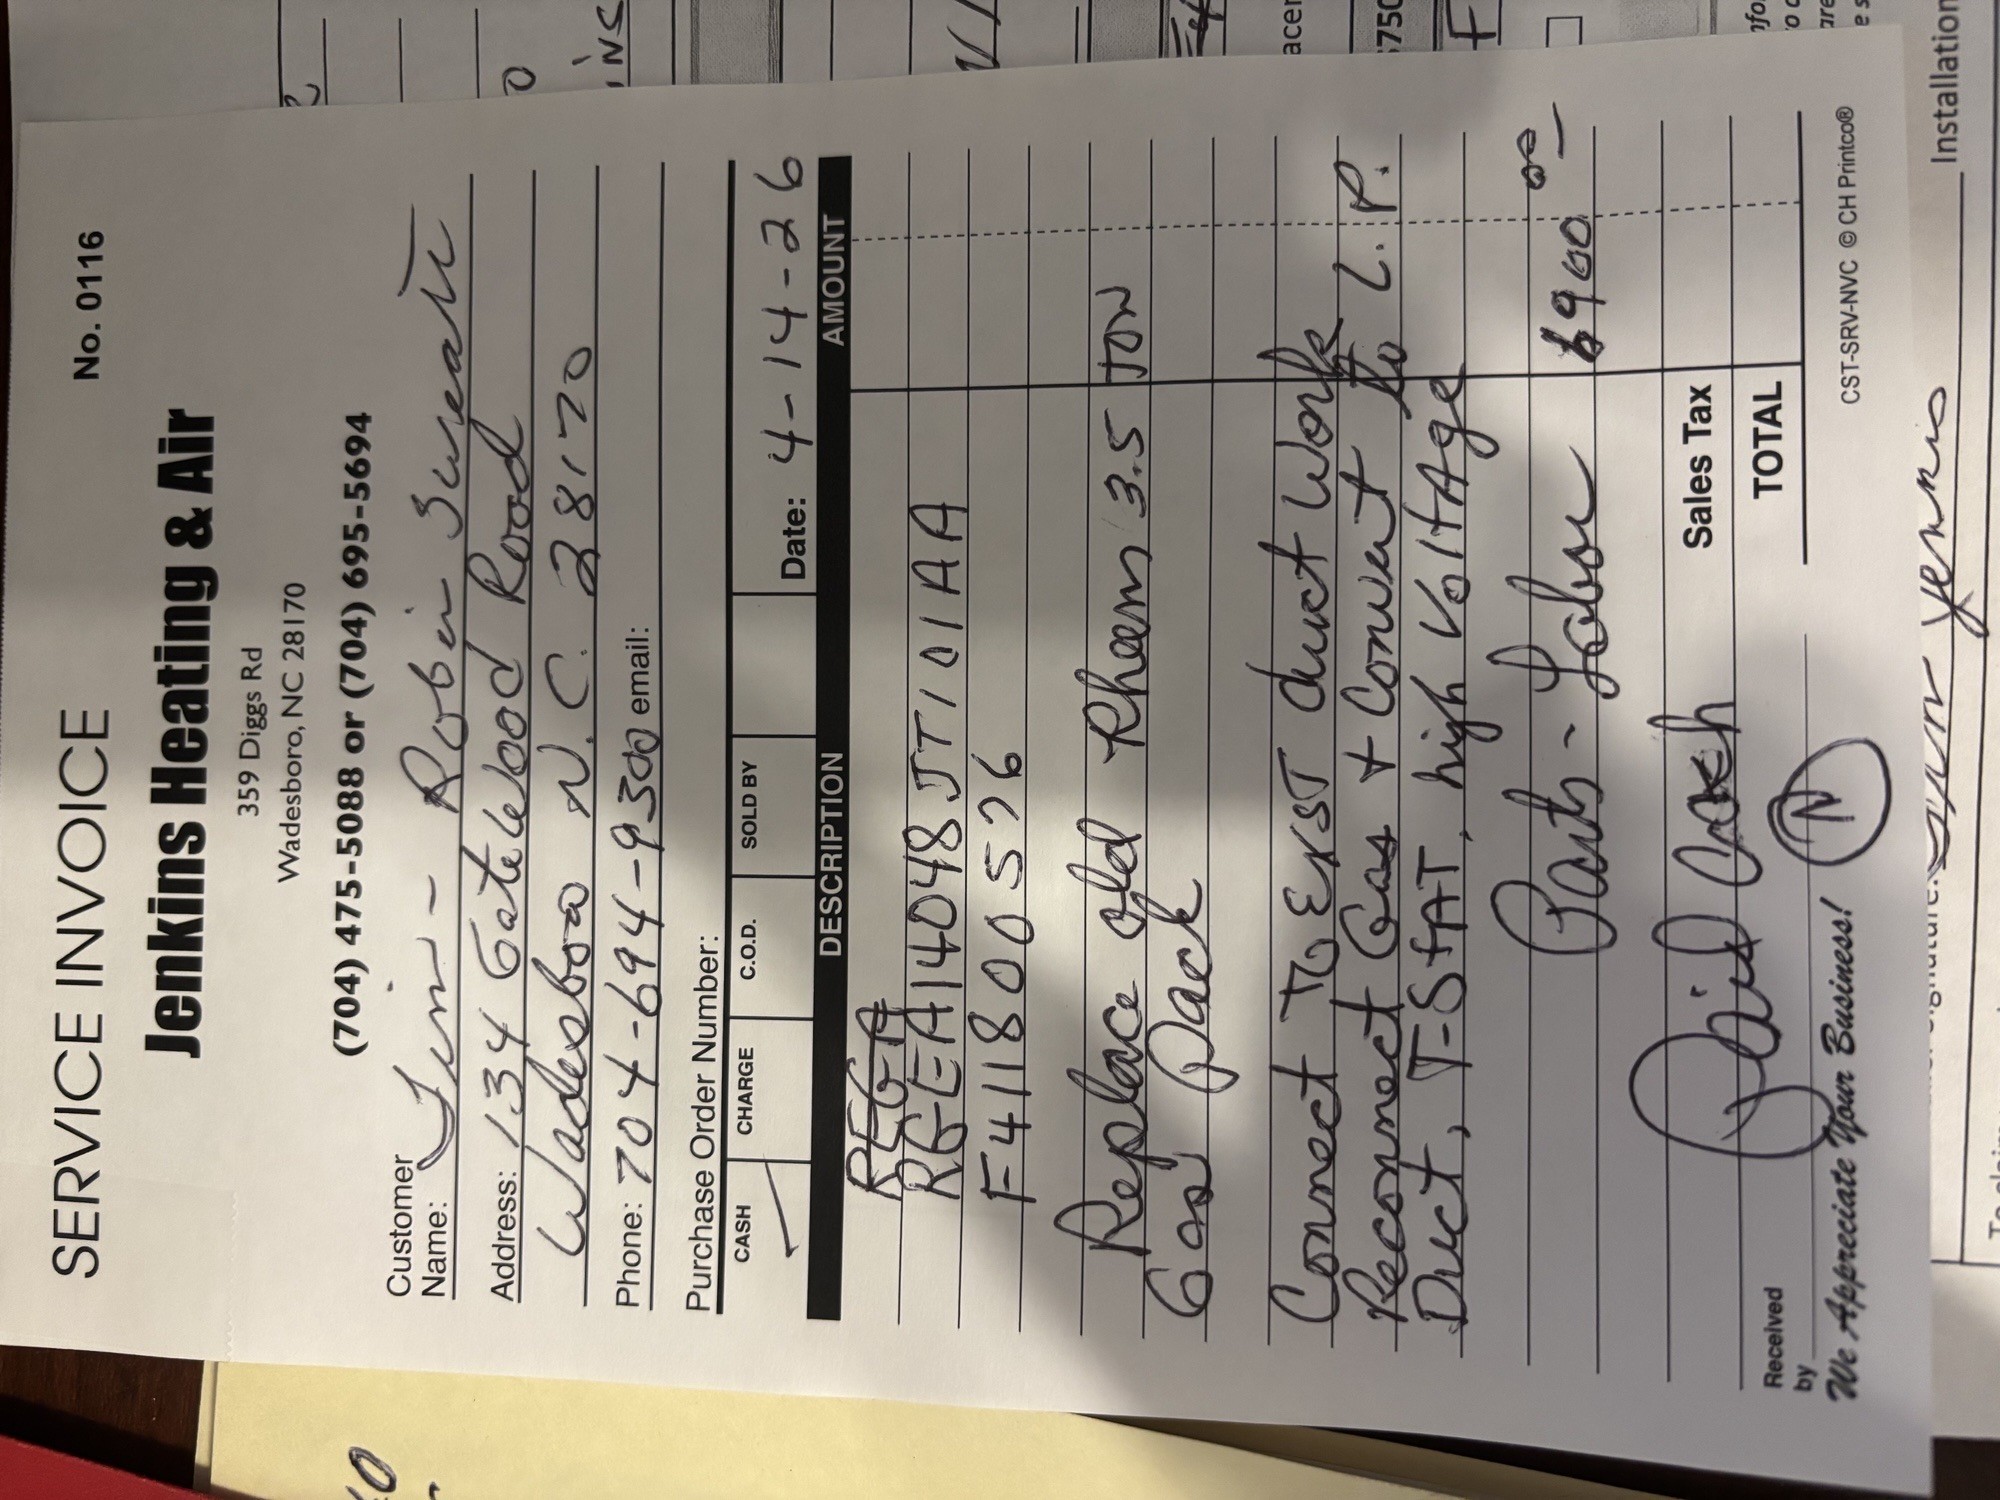 SERVICE INVOICE
No. 0116
Jenkins Heating & Air
359 Diggs Rd
Wadesboro, NC 28170
(704) 475-5088 or (704) 695-5694
Customer
Name: Tim - Robin
Address: 134 Gatewood Road
Wadesboro N.C. 28170
Phone: 704-694-9300 email:
Purchase Order Number:
CASH CHARGE C.O.D. SOLD BY Date: 4-14-26
DESCRIPTION AMOUNT
REGA
RGEA14048JT101AA
F411800576
Replace old Rheem 3.5 TON
Gas Pack
Connect To EXST duct Work
Reconnect Gas + Convert to L.P.
Duct, T-StAT, high VoltAge
Parts - Labor 6900 00
Paid Cash
Sales Tax
TOTAL
Received
by N
We Appreciate Your Business!
CST-SRV-NVC © CH Printco®
Installation